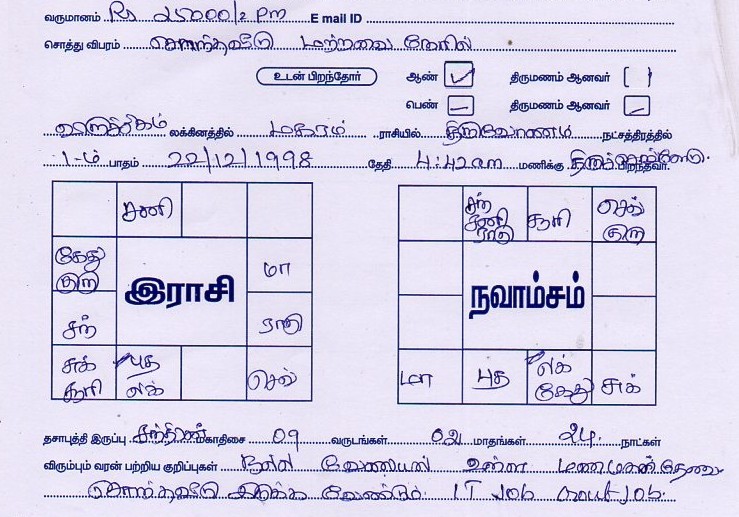 வருமானம் Rs 25000/2 pm E mail ID
சொத்து விபரம் சொந்தவீடு மற்றவை நேரில்
உடன் பிறந்தோர் ஆண் ✓ திருமணம் ஆனவர்
பெண் — திருமணம் ஆனவர் —
லக்கினத்தில் மகரம் ராசியில் திருவோணம் நட்சத்திரத்தில்
1-ம் பாதம் 22/12/1998 தேதி 4:42 am மணிக்கு பிறந்தவர்.
சனி
சந் சனி ராகு
சூரி
செவ் குரு
கேது குரு
மா
இராசி
நவாம்சம்
சந்
ராகு
சுக் சூரி
புத லக்
செவ்
மா
புத
லக் கேது
சுக்
தசாபுத்தி இருப்பு சந்திரன் மகாதிசை 09 வருடங்கள் 02 மாதங்கள் 24 நாட்கள்
விரும்பும் வரன் பற்றிய குறிப்புகள் நல்ல வேலையில் உள்ள மணமகன் தேவை
சொந்தவீடு இருக்க வேண்டும். IT Job Govt Job.